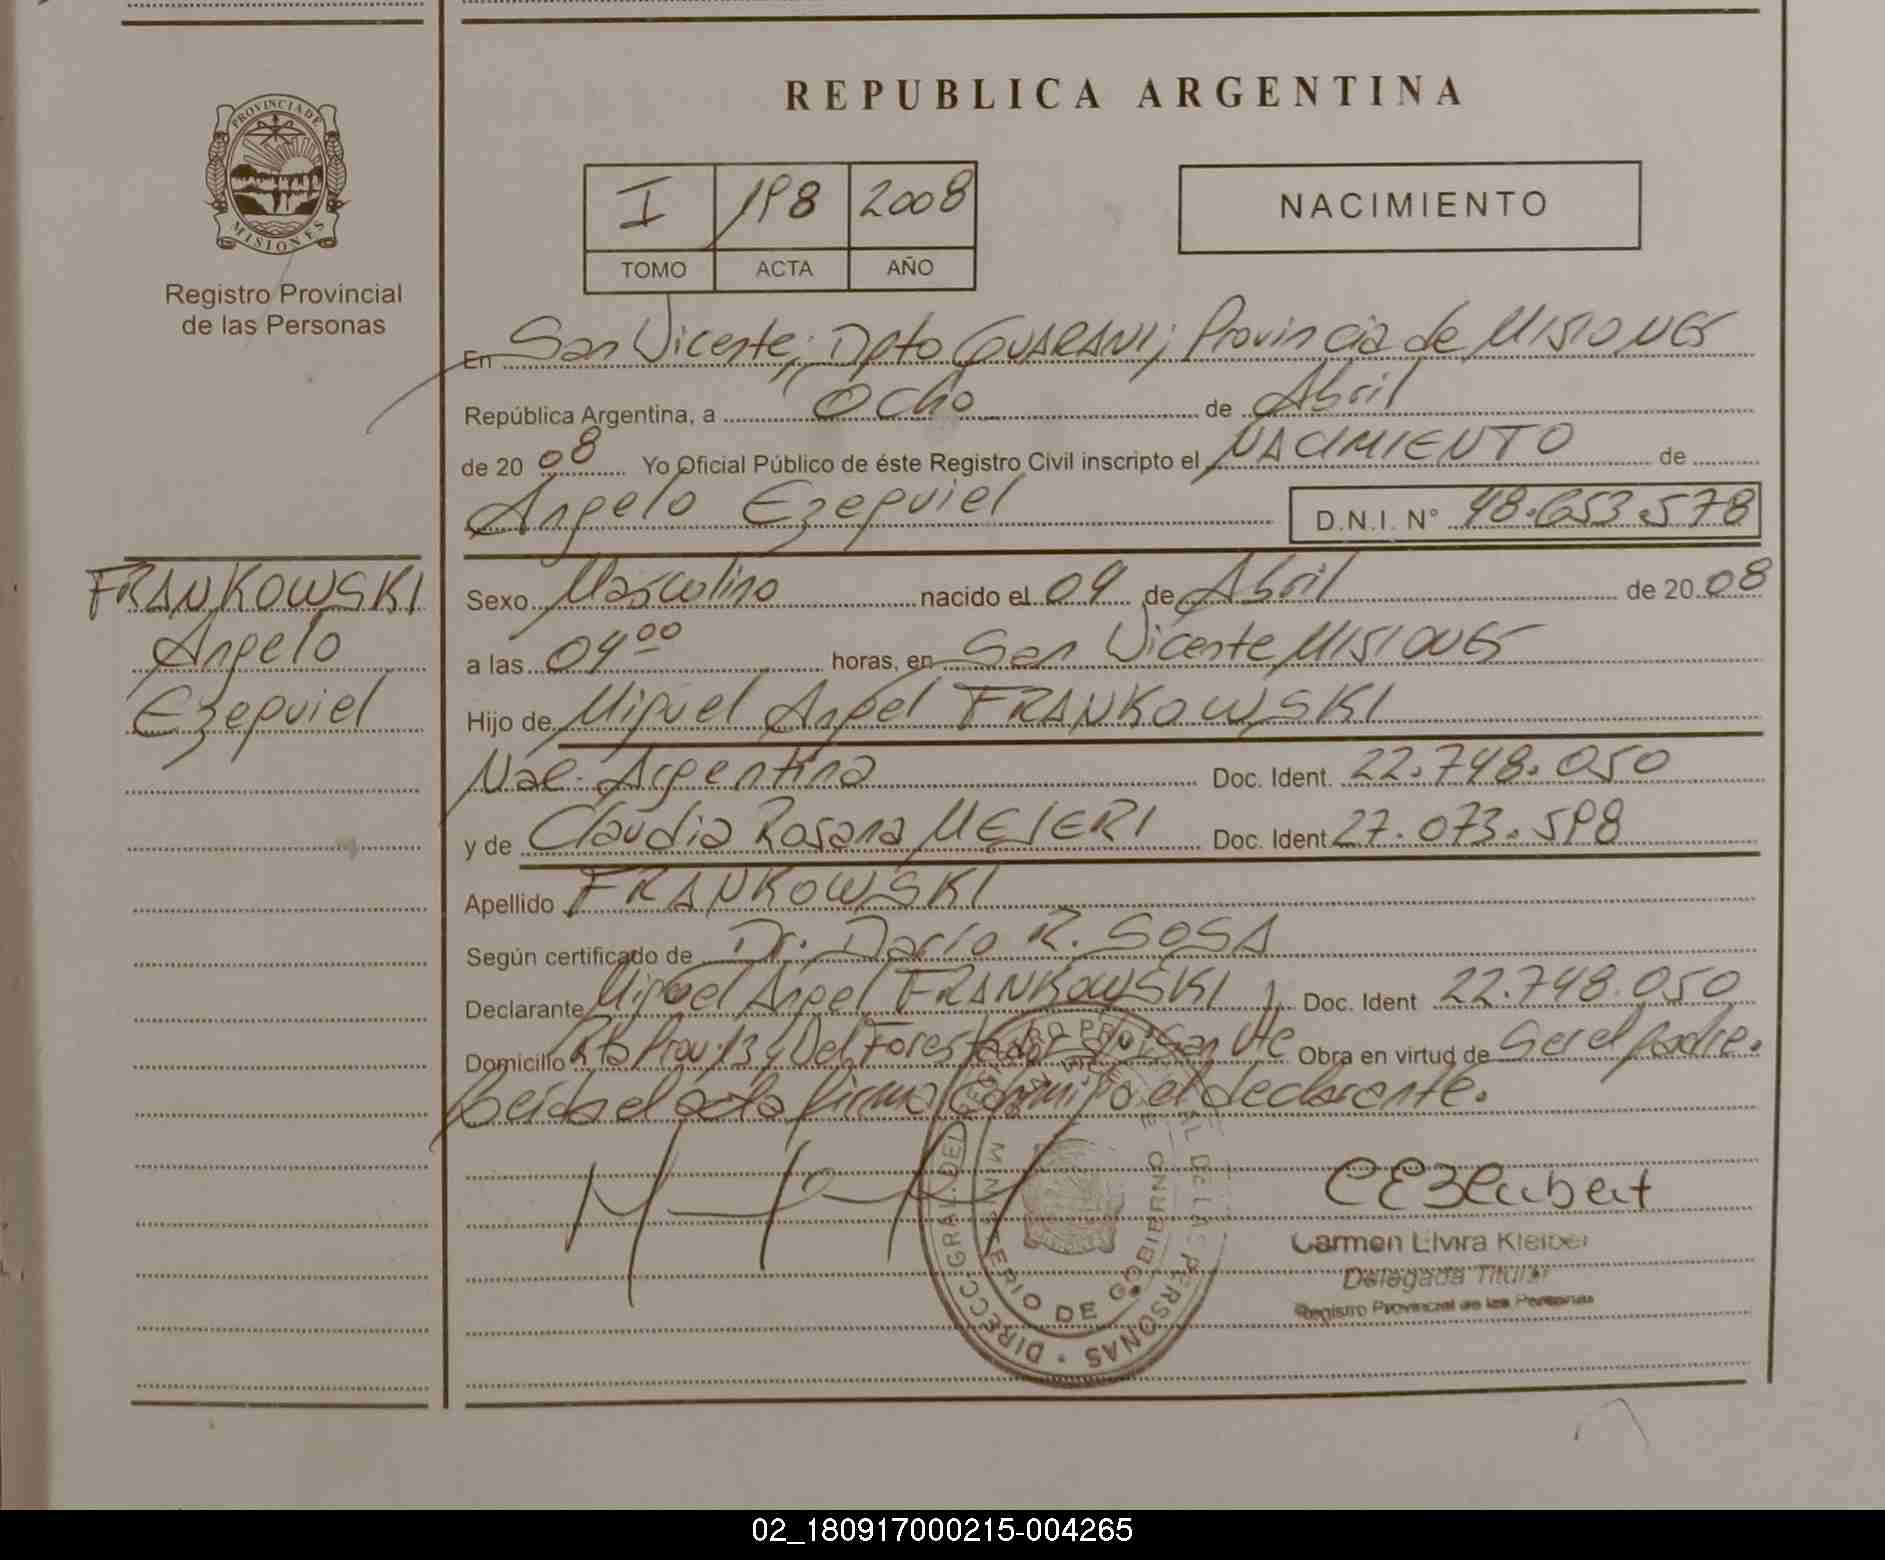 REPUBLICA ARGENTINA
PROVINCIA DE
MISIONES
Registro Provincial
de las Personas
I 198 2008
TOMO ACTA AÑO
NACIMIENTO
En San Vicente; Dpto GUARANI; Provincia de MISIONES
República Argentina, a Ocho de Abril
de 20 08 Yo Oficial Público de éste Registro Civil inscripto el NACIMIENTO de
Angelo Ezequiel D.N.I. N° 48.653.578
FRANKOWSKI
Angelo
Ezequiel
Sexo Masculino nacido el 04 de Abril de 20 08
a las 04 00 horas, en San Vicente MISIONES
Hijo de Miguel Angel FRANKOWSKI
Nac. Argentina Doc. Ident. 22.748.050
y de Claudia Rosana MEIERI Doc. Ident 27.073.598
Apellido FRANKOWSKI
Según certificado de Dr. Darío R. SOSA
Declarante Miguel Angel FRANKOWSKI Doc. Ident 22.748.050
Domicilio Rta Prov. 13 y Del Forestador San Vte Obra en virtud de Ser el padre.
Leída el acta firma conmigo el declarante.
DIRECC. GRAL. DEL REGISTRO PROVINCIAL DE LAS PERSONAS
MINISTERIO DE GOBIERNO
Carmen Elvira Kleiber
Delegada Titular
Registro Provincial de las Personas
02_180917000215-004265